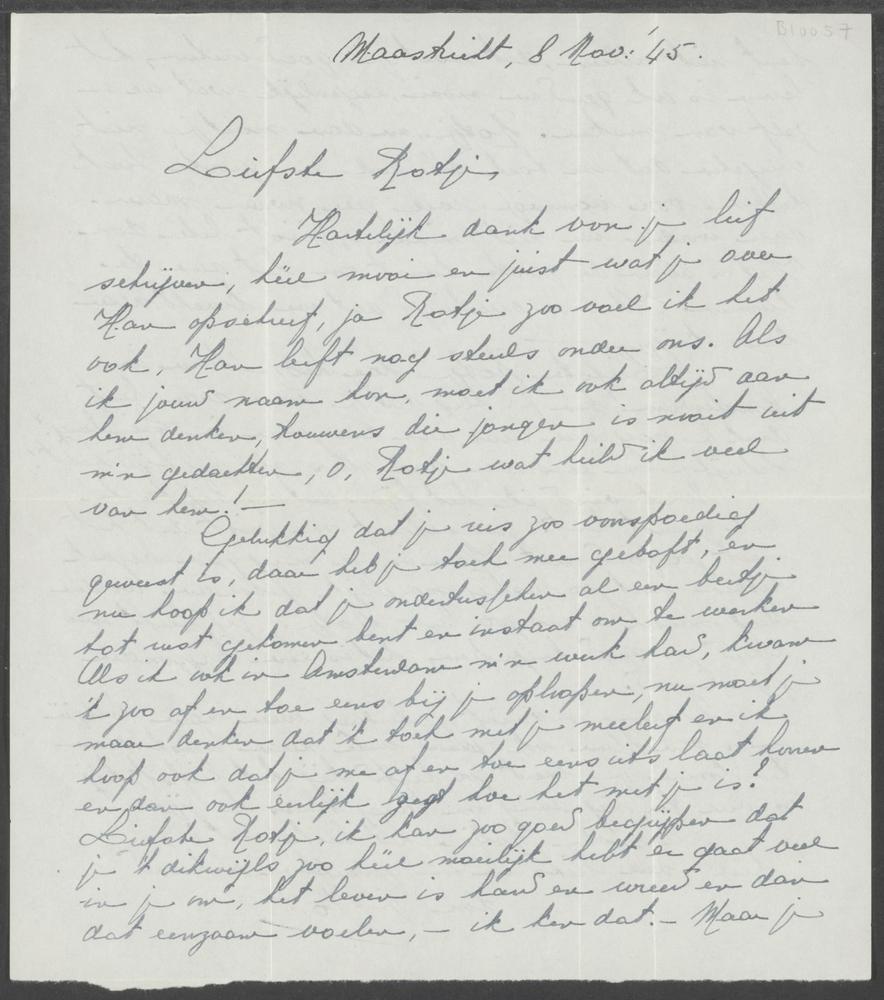 B10057
Maastricht, 8 Nov: '45.
Liefste Rotje,
Hartelijk dank voor je lief
schrijven, héél mooi en juist wat je over
Han opschreef, ja Rotje zoo voel ik het
ook, Han leeft nog steeds onder ons. Als
ik jouw naam hoor, moet ik ook altijd aan
hem denken, trouwens die jongen is nooit uit
m'n gedachten, O, Rotje wat hield ik veel
van hem! —
Gelukkig dat je reis zoo voorspoedig
geweest is, daar heb je toch mee geboft, en
nu hoop ik dat je ondertusschen al een beetje
tot rust gekomen bent en instaat om te werken
Als ik ook in Amsterdam m'n werk had, kwam
'k zoo af en toe eens bij je ophappen, nu moet je
maar denken dat 'k toch met je meeleef en ik
hoop ook dat je me af en toe eens iets laat hooren
en dan ook eerlijk zegt hoe het met je is?
Liefste Rotje, ik kan zoo goed begrijpen dat
je 't dikwijls zoo héél moeilijk hebt er gaat veel
in je om, het leven is hard en wreed en dan
dat eenzaam voelen, — ik ken dat. — Maar je